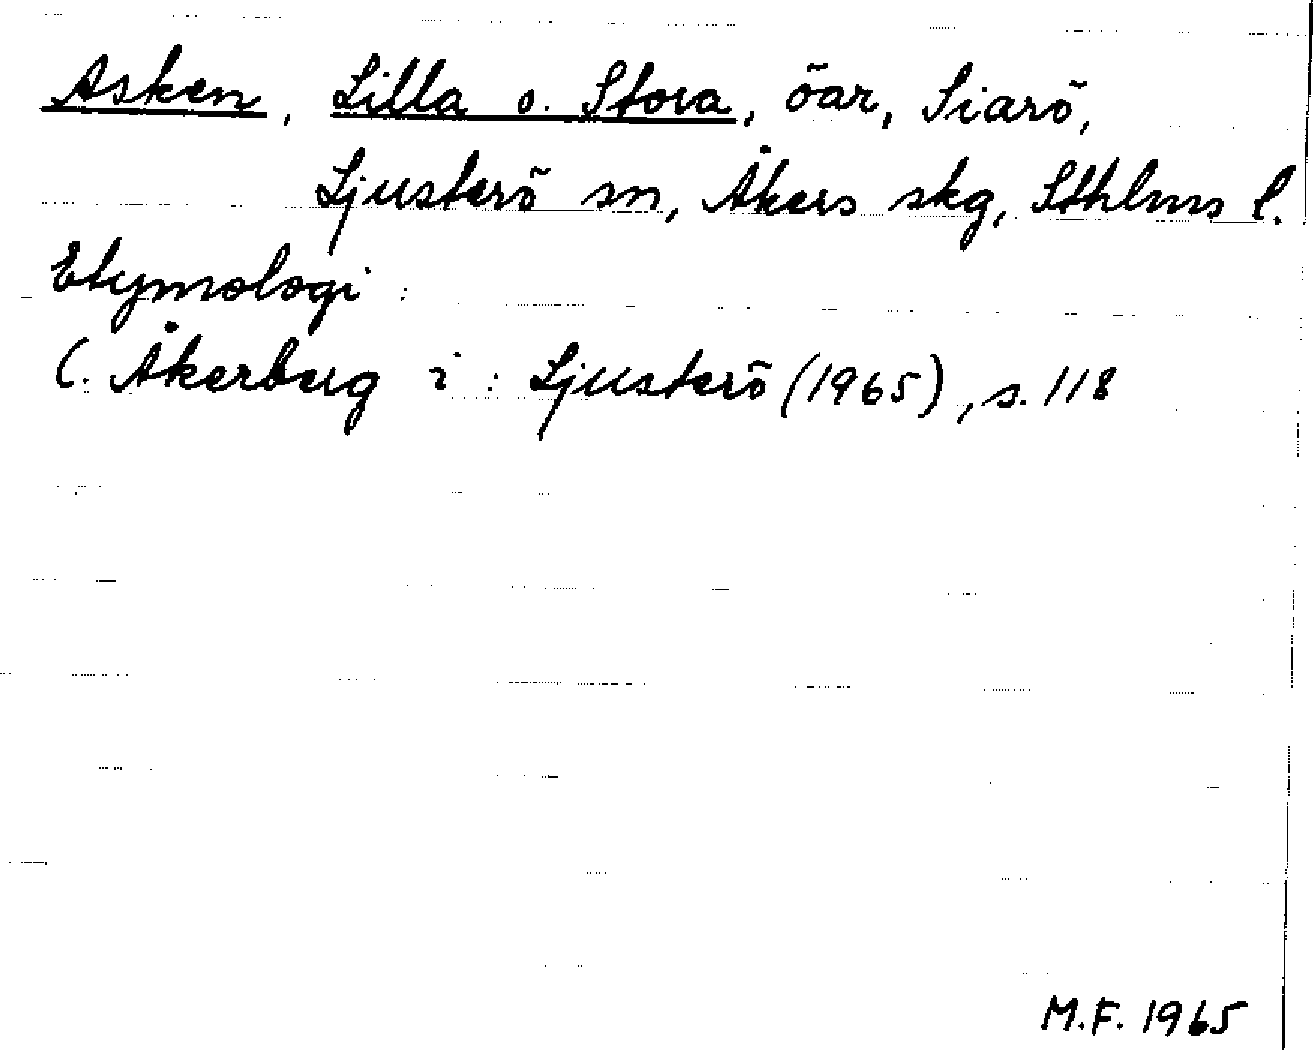 Asken, Lilla o. Stora, öar, Siarö,
Ljusterö sn, Åkers skg, Sthlms l.
Etymologi :
C. Åkerberg i : Ljusterö (1965), s. 118
M.F. 1965